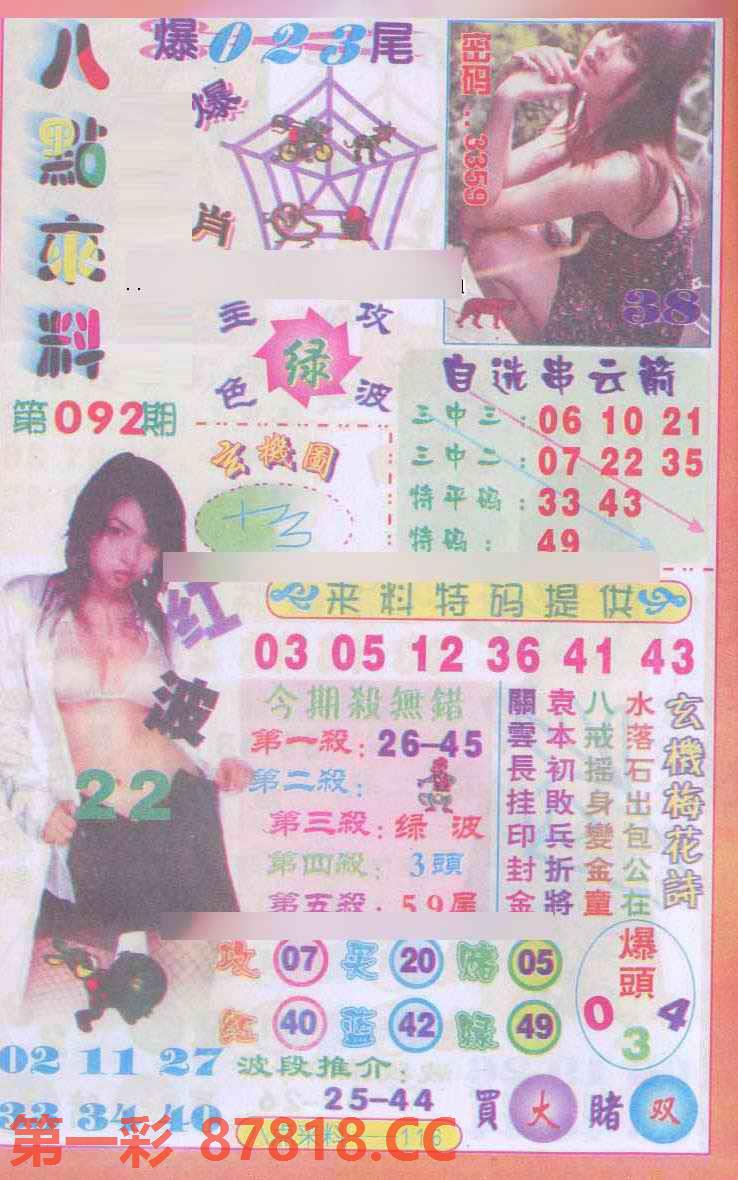 八點來料
爆023尾
爆肖
密码...3359
38
主攻
绿
色波
第092期
自选串云箭
三中三：06 10 21
三中二：07 22 35
特平码：33 43
特码：49
玄機圖
来料特码提供
03 05 12 36 41 43
红波
22
今期殺無錯
第一殺：26-45
第二殺：
第三殺：绿波
第四殺：3頭
第五殺：59尾
玄機梅花詩
水落石出包公在
八戒摇身變金童
袁本初敗兵折將
關雲長挂印封金
攻 07 买 20 赌 05
红 40 蓝 42 绿 49
爆頭
0 3 4
02 11 27
33 34 40
波段推介：
25-44
買大賭双
第一彩 87818.CC